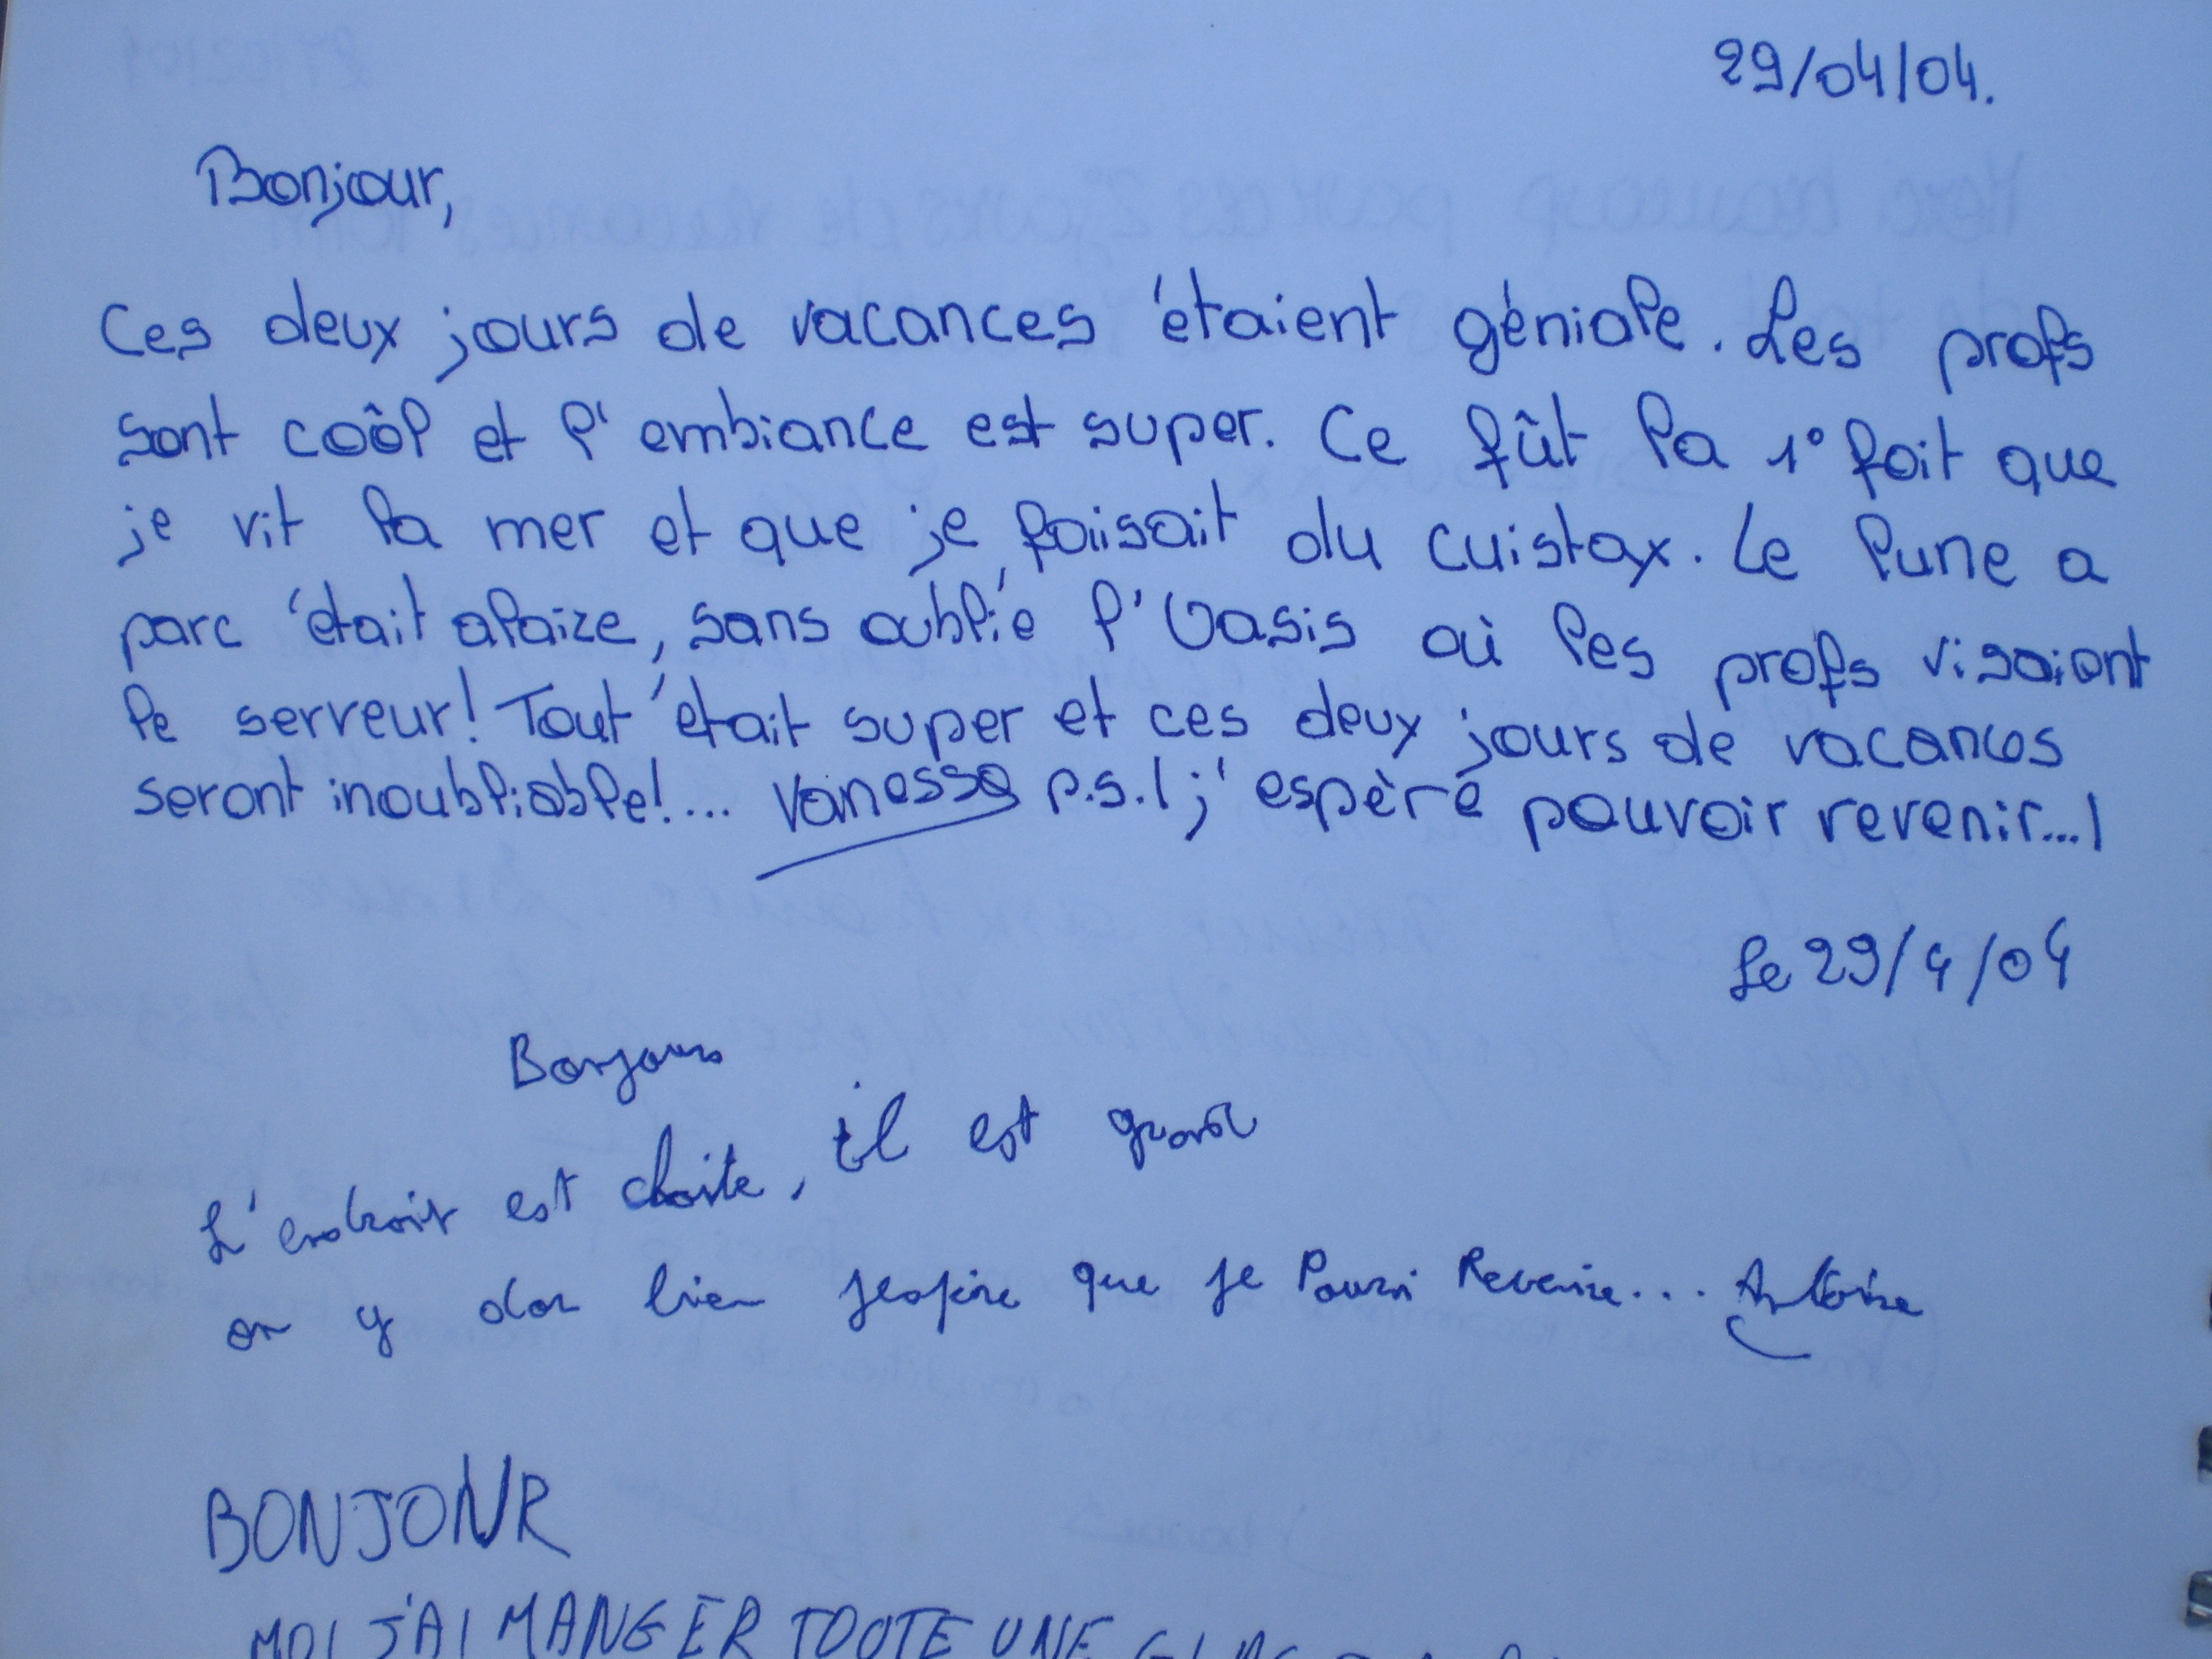 29/04/04.
Bonjour,
Ces deux jours de vacances étaient géniale. Les profs
sont coôl et l'embiance est super. Ce fût la 1° foit que
je vit la mer et que je faisait du cuistax. Le lune a
parc était alaize, sans oublié l'Oasis où les profs visaient
le serveur! Tout était super et ces deux jours de vacances
seront inoubliable!... Vanessa p.s.! j'espère pouvoir revenir...!
Le 29/4/04
Bonjour
L'endroit est, il est grand
on y dor bien jespére que je Pourai Revenire... Antoine
BONJOUR
MOI J'AI MANGER TOUTE UNE